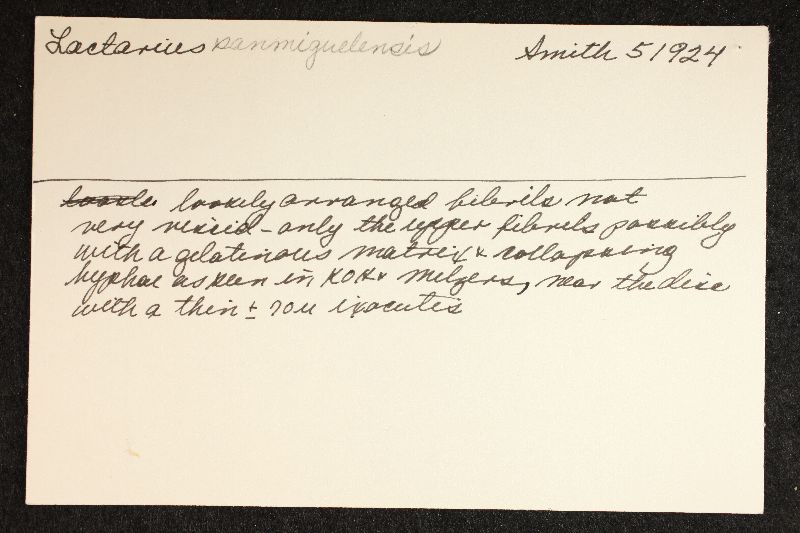 Lactarius sanmiguelensis Smith 51924
loosely arranged fibrils not
very viscid - only the upper fibrils possibly
with a gelatinous matrix & collapsing
hyphae as seen in KOH & Melzers, near the disc
with a thin ± 70µ ixocutis